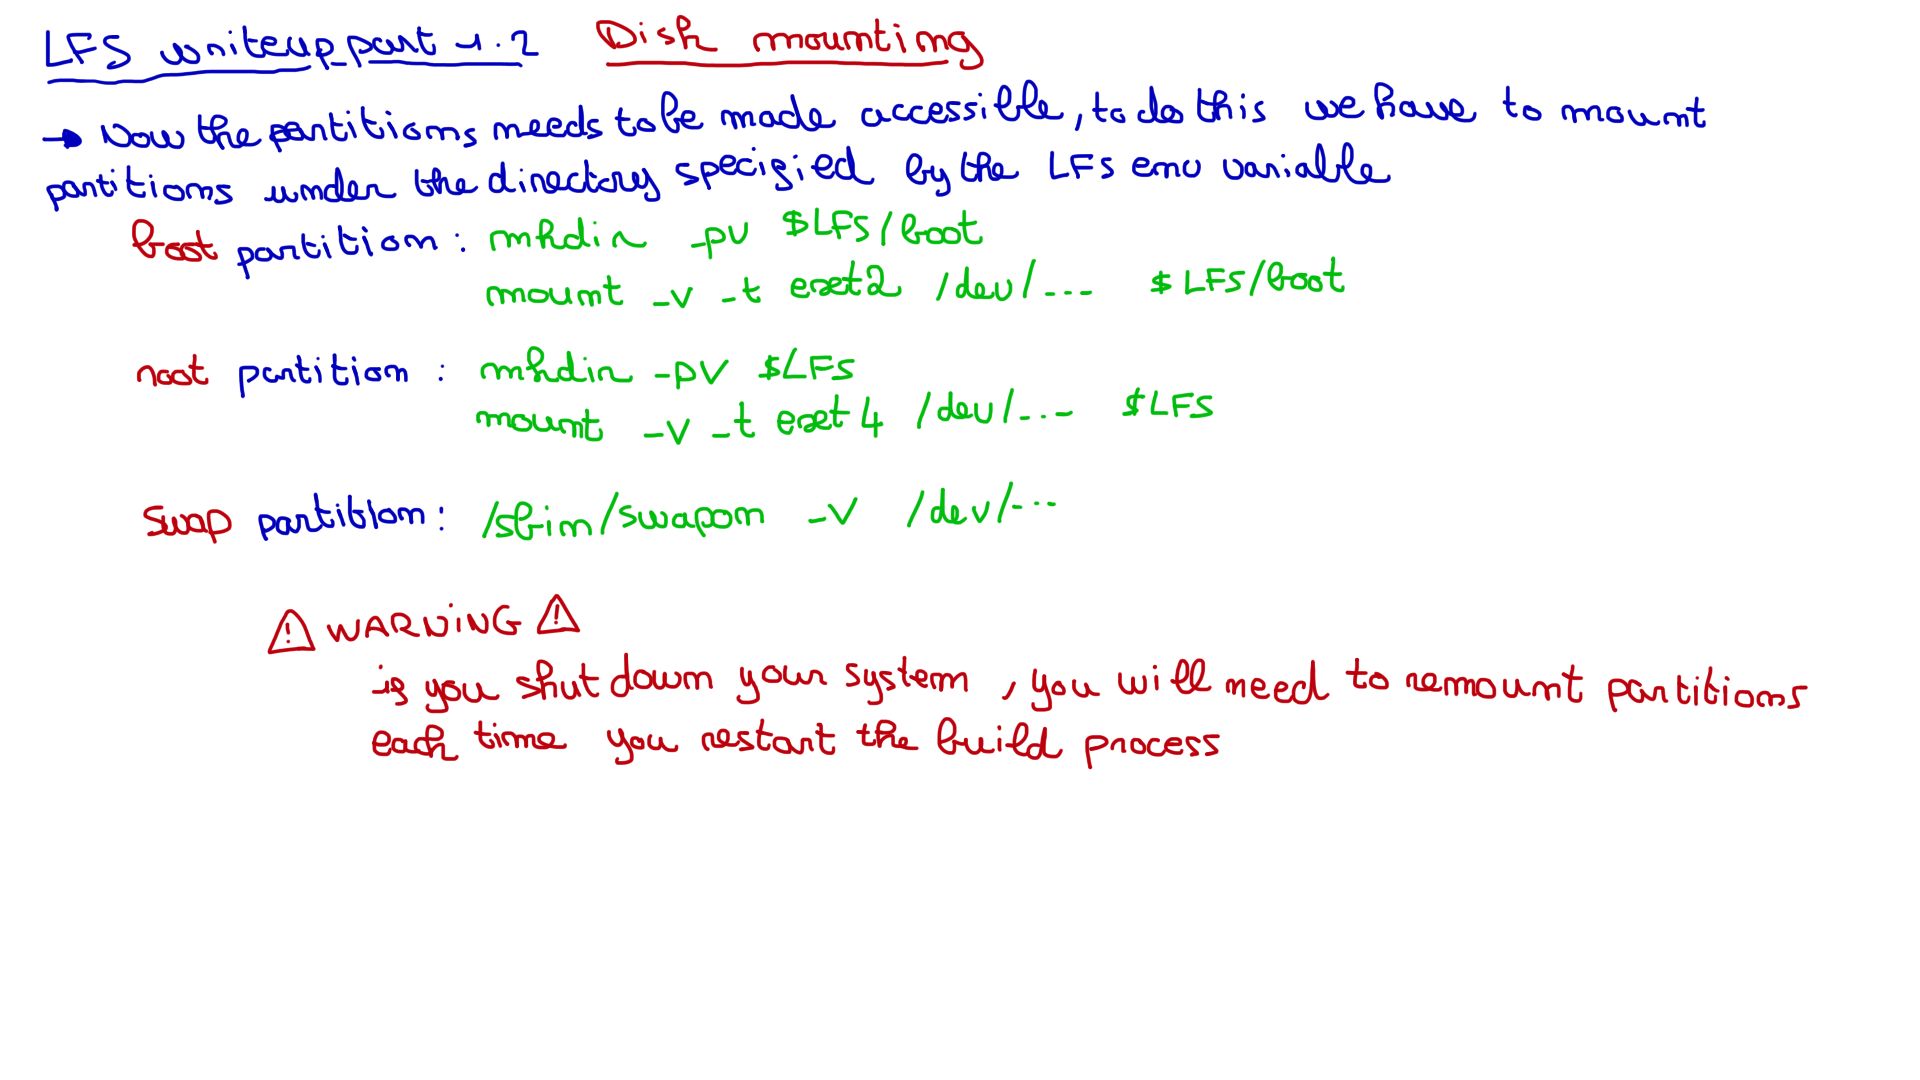 LFS writeup part 1.2 Disk mounting
→ Now the partitions needs to be made accessible, to do this we have to mount
partitions under the directory specified by the LFS env variable
boot partition : mkdir -pv $LFS/boot
mount -v -t ext2 /dev/... $LFS/boot
root partition : mkdir -pv $LFS
mount -v -t ext4 /dev/... $LFS
Swap partition : /sbin/swapon -v /dev/...
⚠ WARNiNG ⚠
if you shutdown your system, you will need to remount partitions
each time you restart the build process